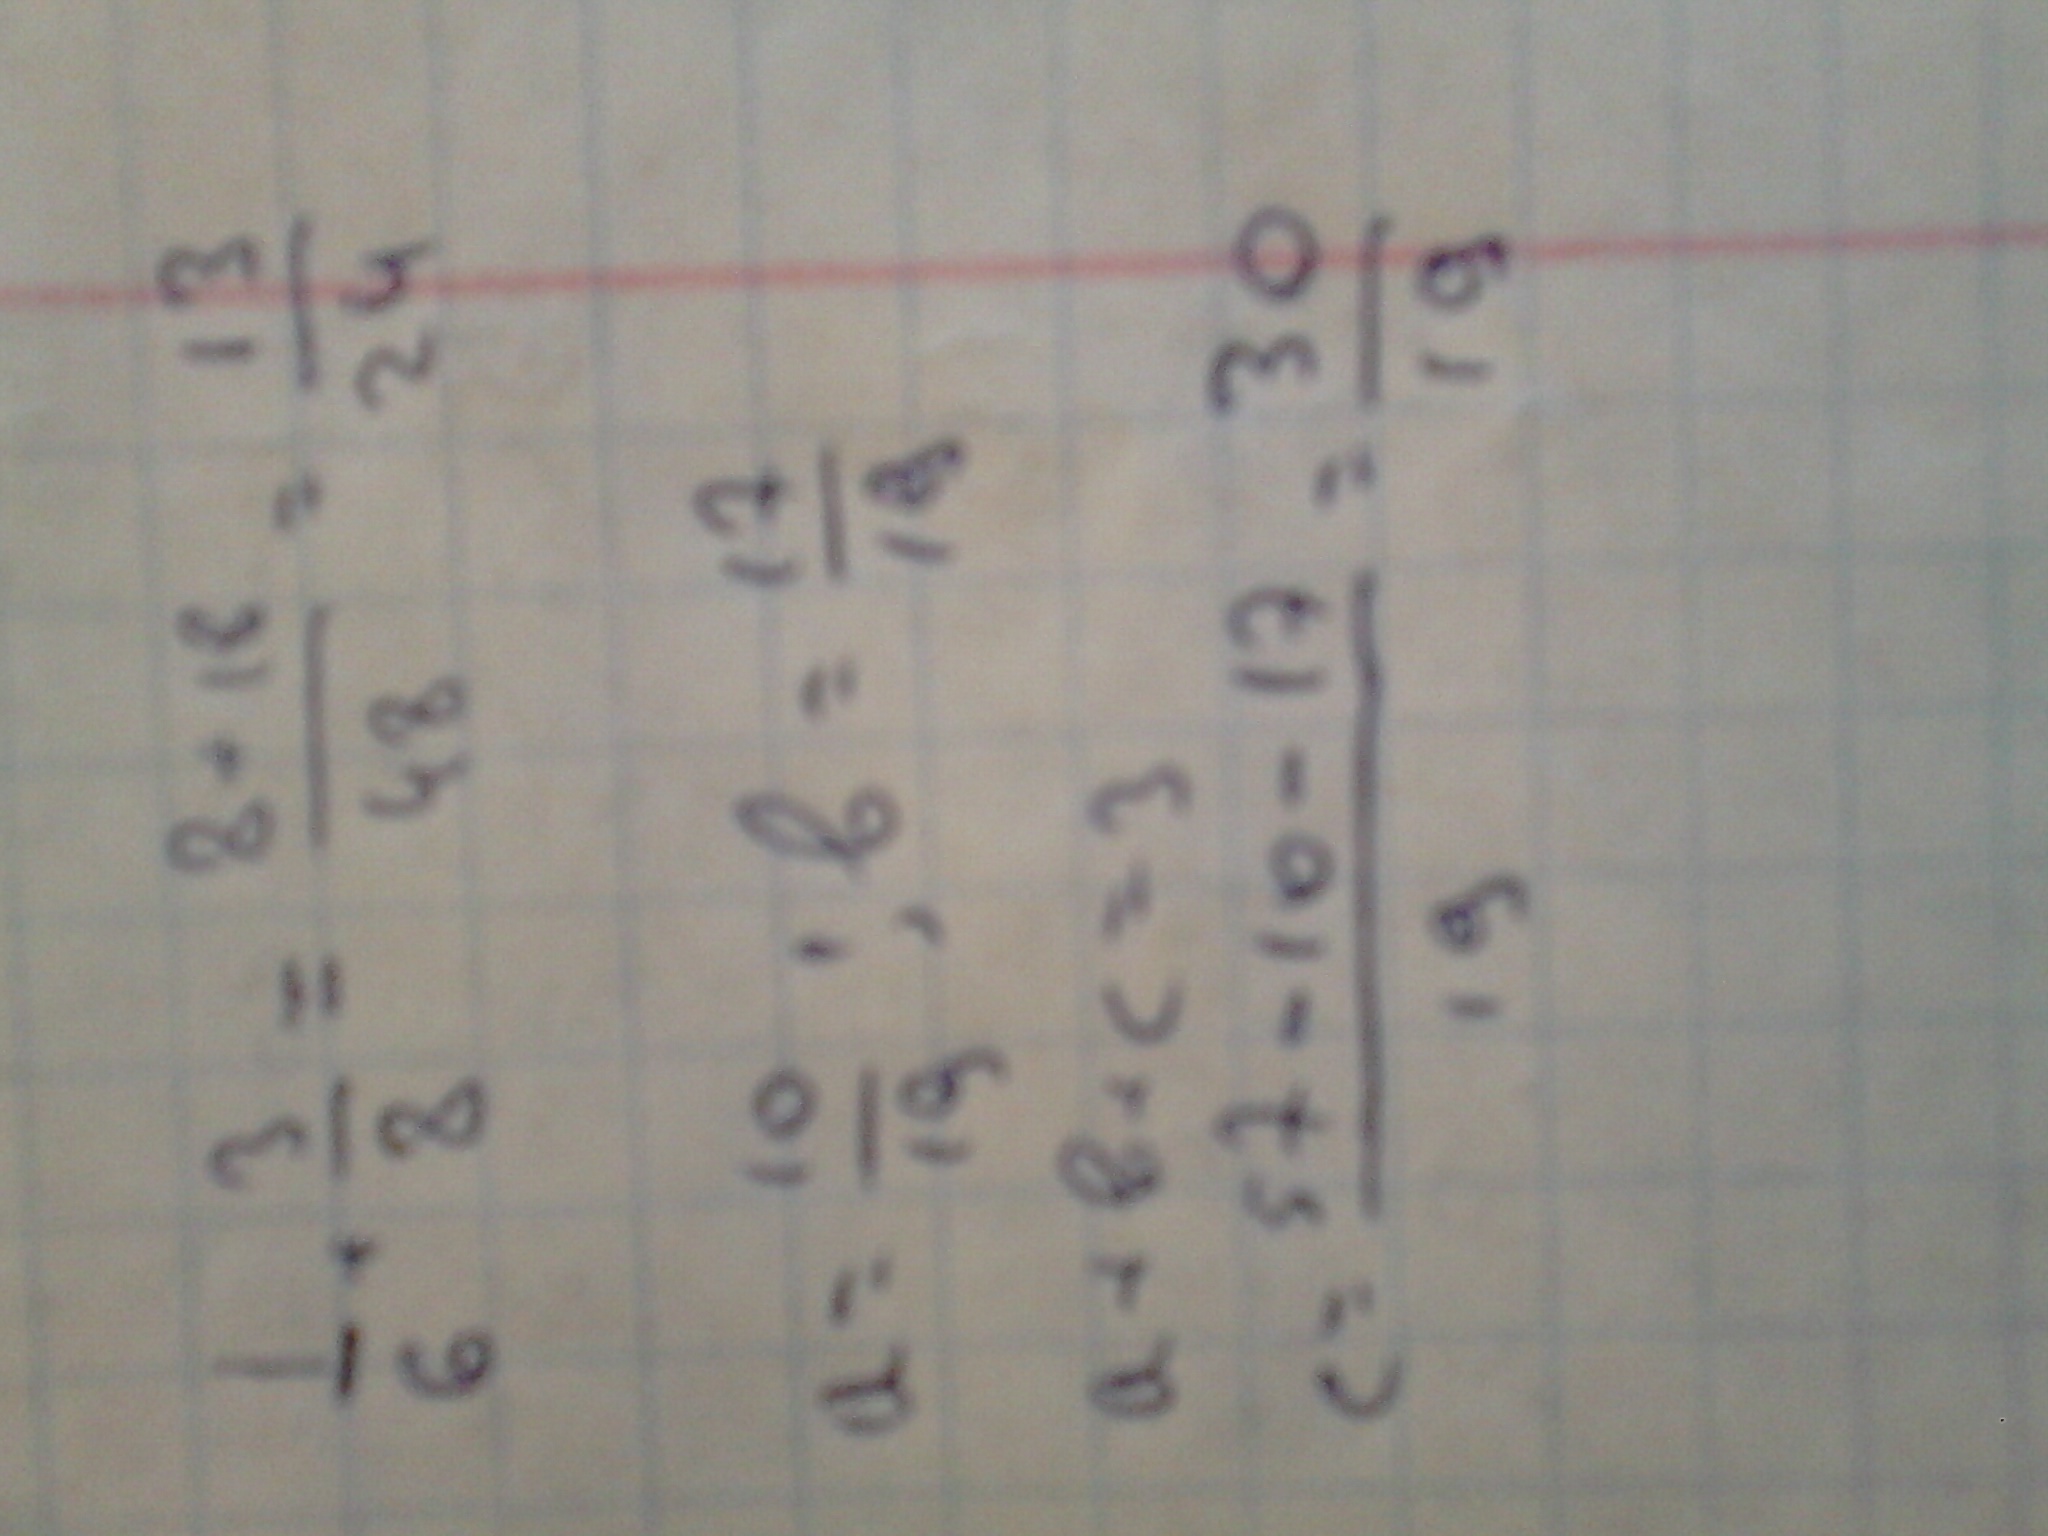 1/6 + 3/8 = (8 + 18)/48 = 13/24
a = 10/19 ; b = 17/19
a + b + c = 3
c = (57 - 10 - 17)/19 = 30/19